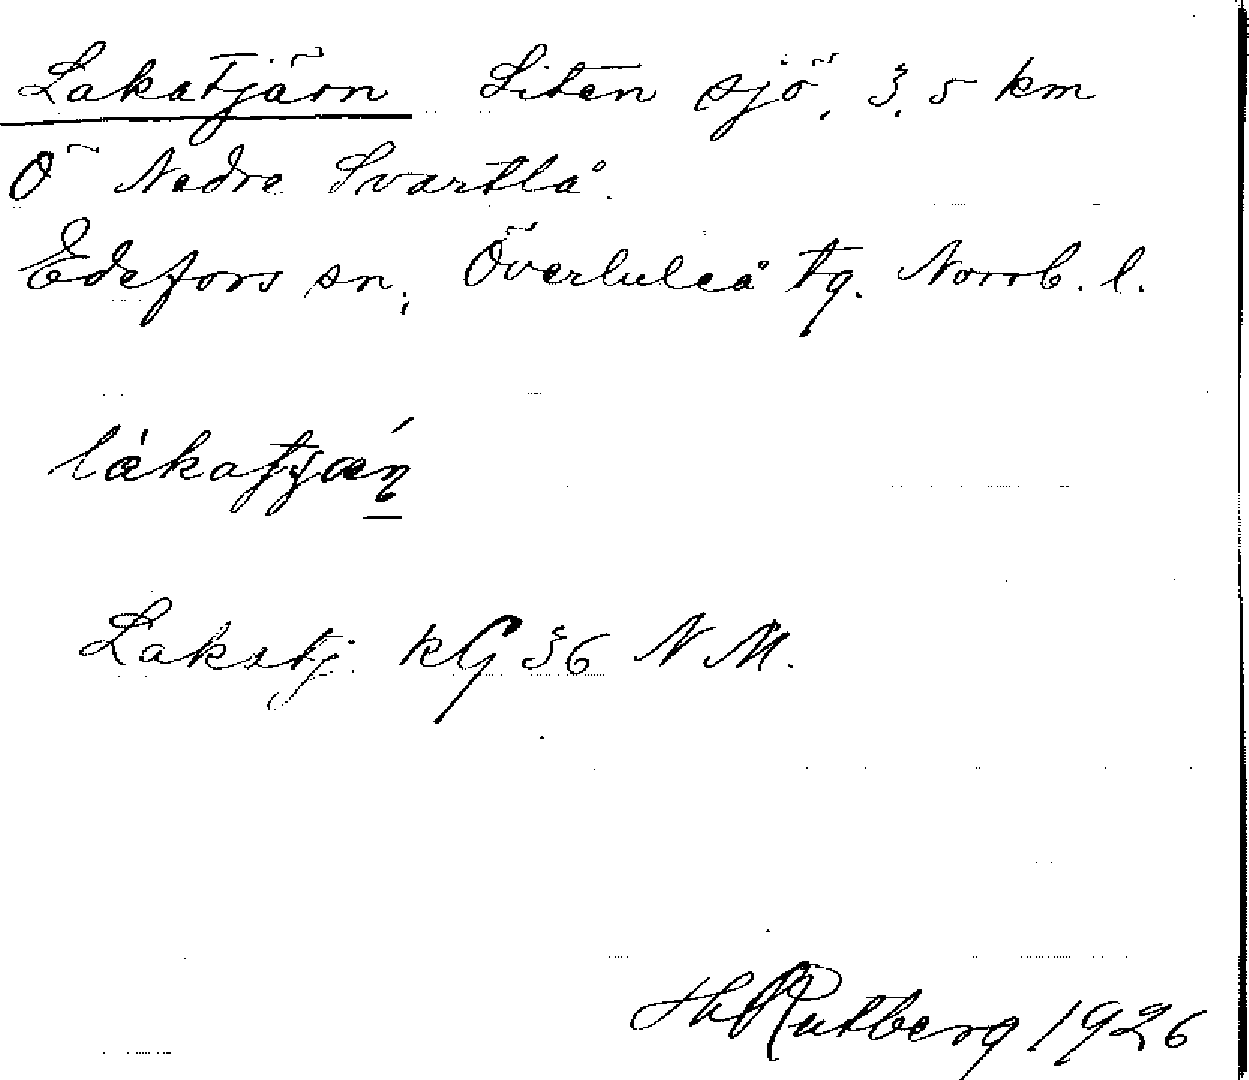 Lakatjärn Liten sjö, 3,5 km
Ö Nedre Svartlå.
Edefors sn, Överluleå tg. Norrb. l.
Lakatj. kG 36 N M.
Hj Rutberg 1926